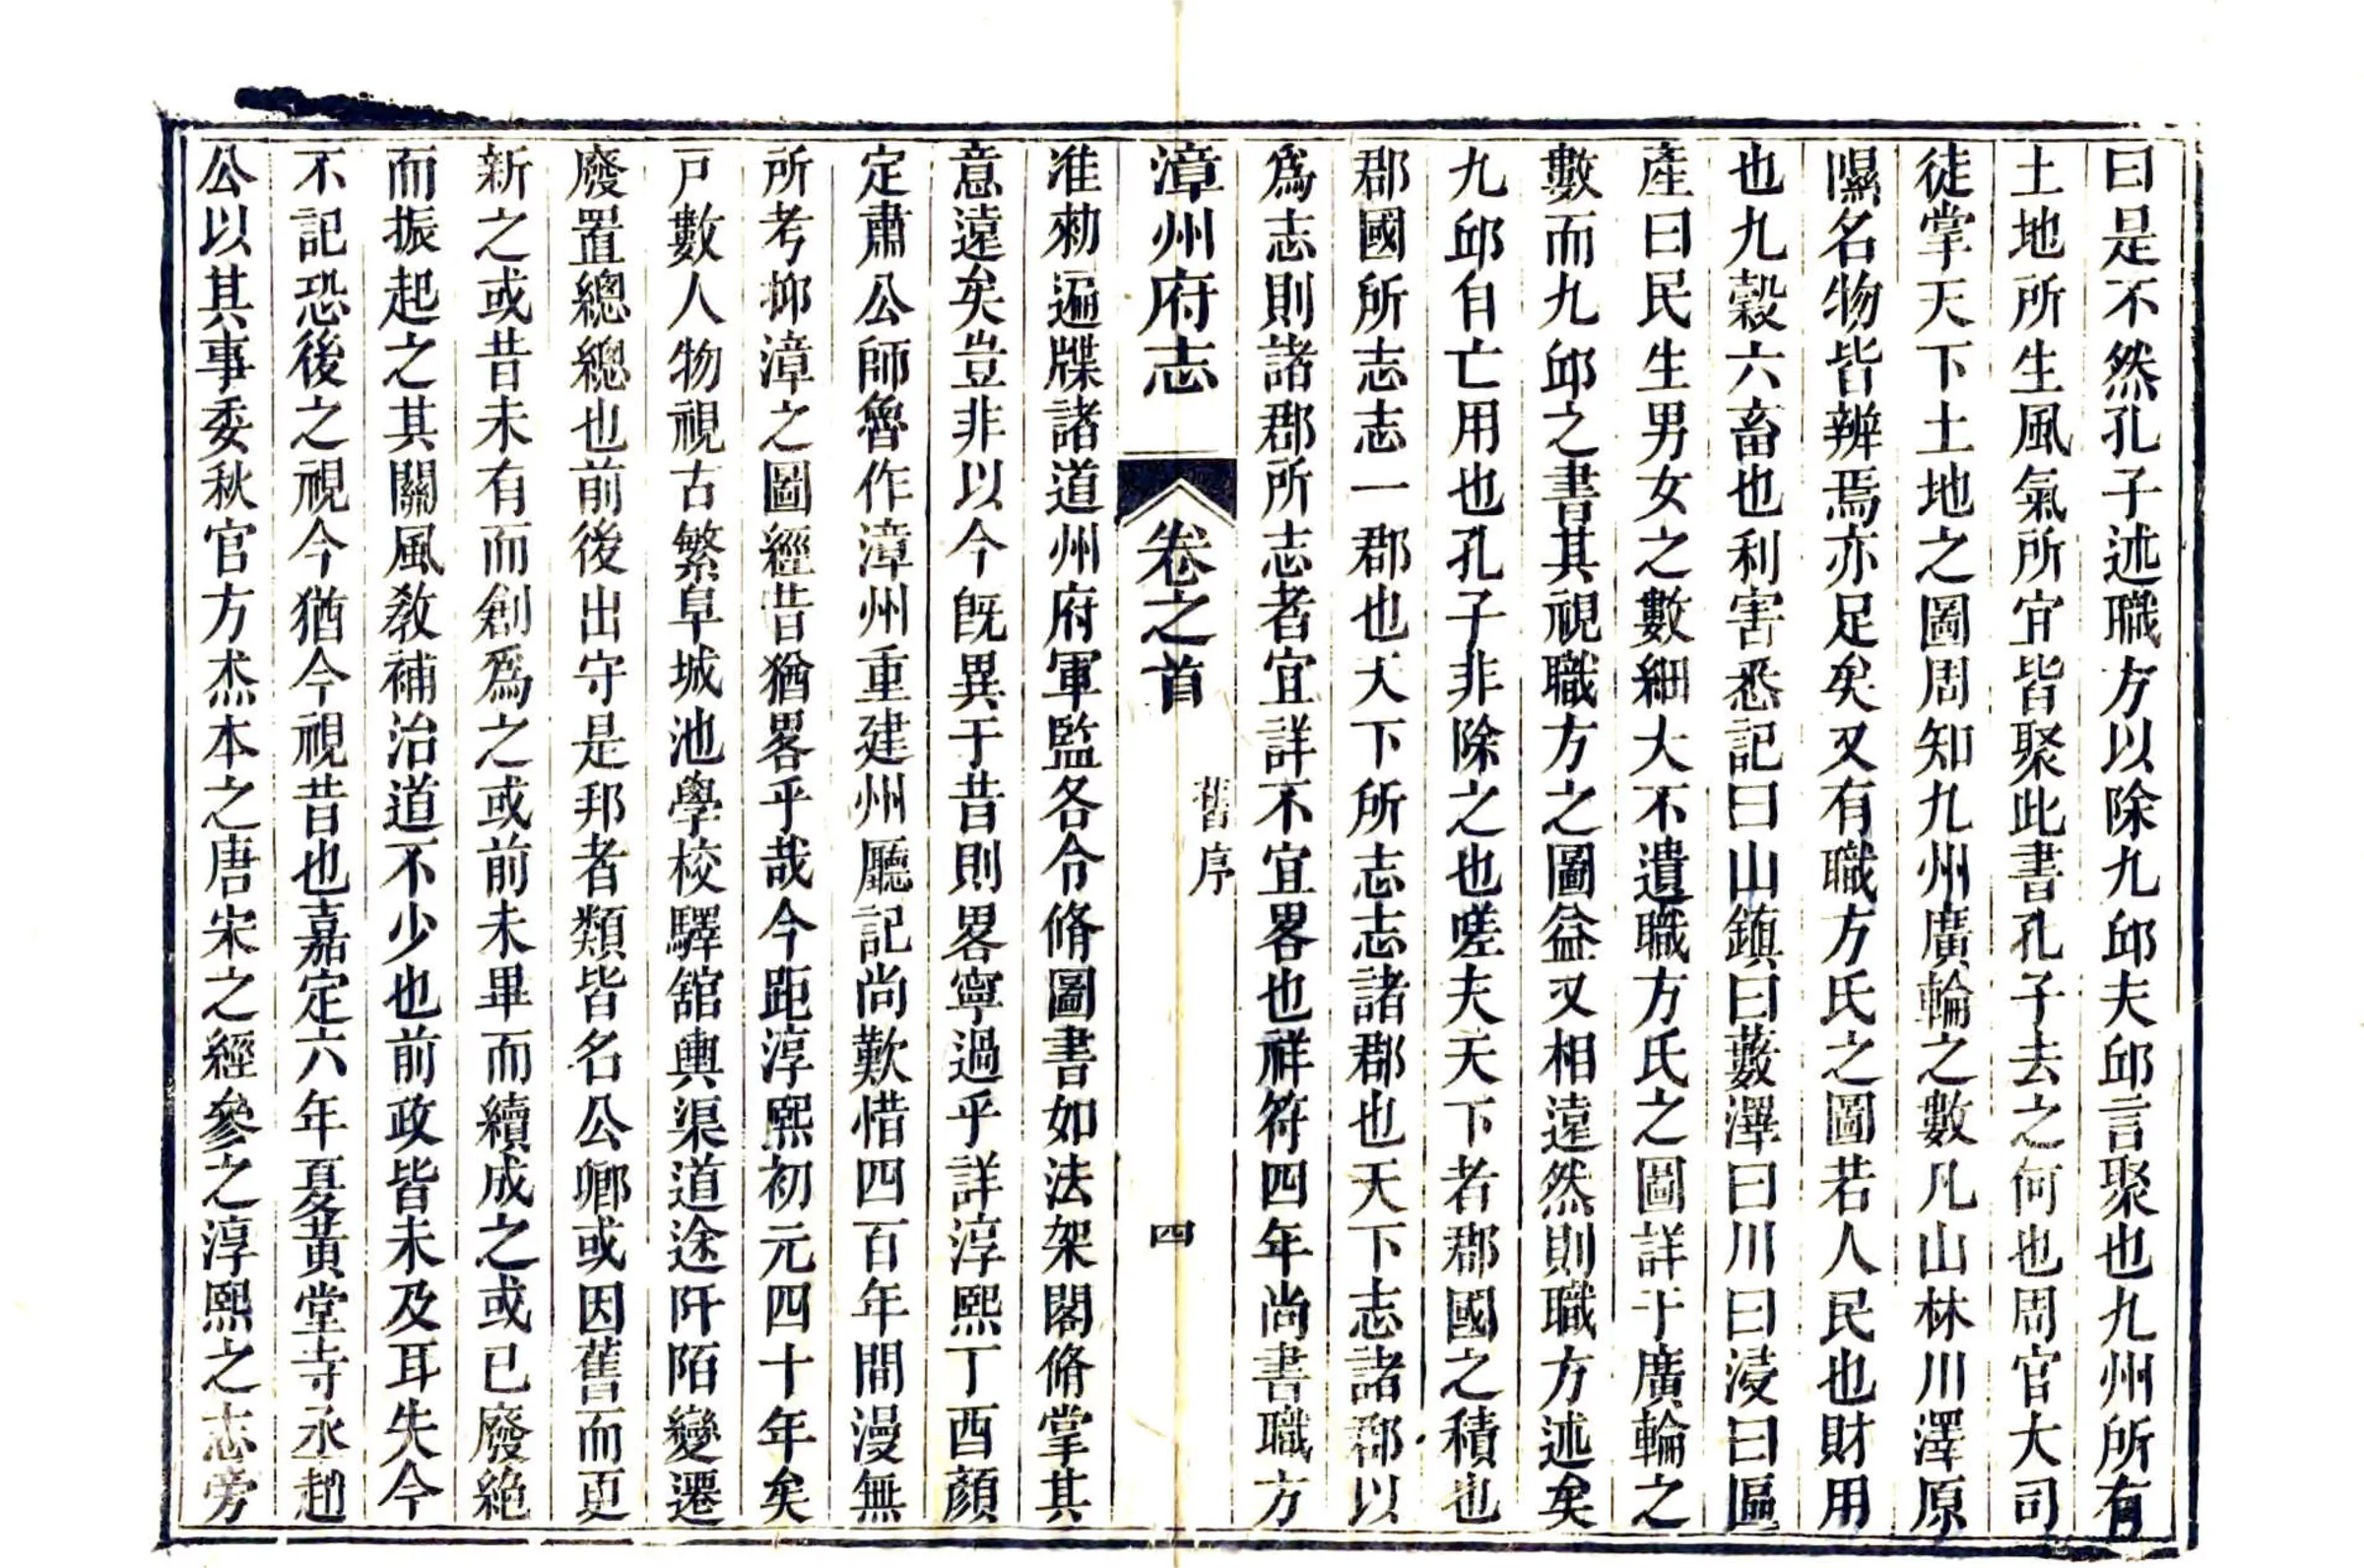 曰是不然孔子述職方以除九邱夫邱言聚也九州所有
土地所生風氣所宜皆聚此書孔子去之何也周官大司
徒掌天下土地之圖周知九州廣輪之數凡山林川澤原
隰名物皆辨焉亦足矣又有職方氏之圖若人民也財用
也九穀六畜也利害悉記曰山鎮曰藪澤曰川曰浸曰區
產曰民生男女之數細大不遺職方氏之圖詳于廣輪之
數而九邱之書其視職方之圖益又相遠然則職方述矣
九邱自亡用也孔子非除之也嗟夫天下者郡國之積也
郡國所志志一郡也天下所志志諸郡也天下志諸郡以
爲志則諸郡所志者宜詳不宜畧也祥符四年尚書職方
漳州府志 卷之首 舊序 四
准勑遍牒諸道州府軍監各令脩圖書如法架閣脩掌其
意遠矣豈非以今旣異于昔則畧寧過乎詳淳熙丁酉顏
定肅公師魯作漳州重建州廳記尚歎惜四百年間漫無
所考抑漳之圖經昔猶畧乎哉今距淳熙初元四十年矣
戸數人物視古繁阜城池學校驛舘輿渠道途阡陌變遷
廢置總總也前後出守是邦者類皆名公卿或因舊而更
新之或昔未有而創爲之或前未畢而續成之或已廢絶
而振起之其關風敎補治道不少也前政皆未及耳失今
不記恐後之視今猶今視昔也嘉定六年夏黃堂寺丞趙
公以其事委秋官方杰本之唐宋之經參之淳熙之志旁